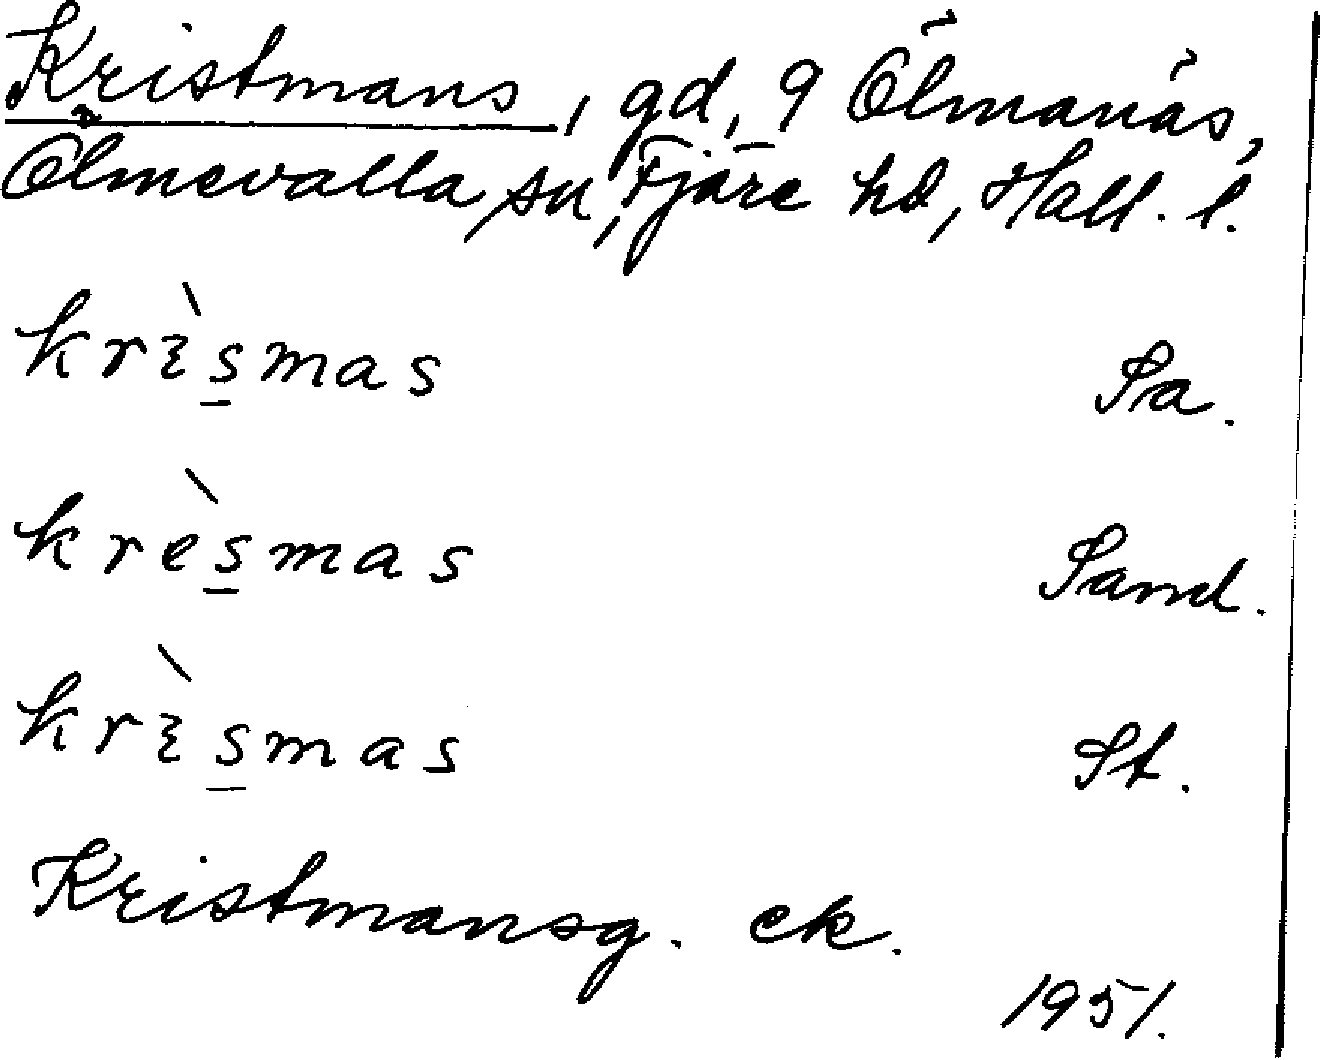 Kristmans, gd, 9 Ölmanäs,
Ölmevalla sn, Fjäre hd, Hall. l.
krɛ̀s̲mas Sa.
krès̲mas Sand.
krɛ̀s̲mas St.
Kristmansg. ek.
1951.